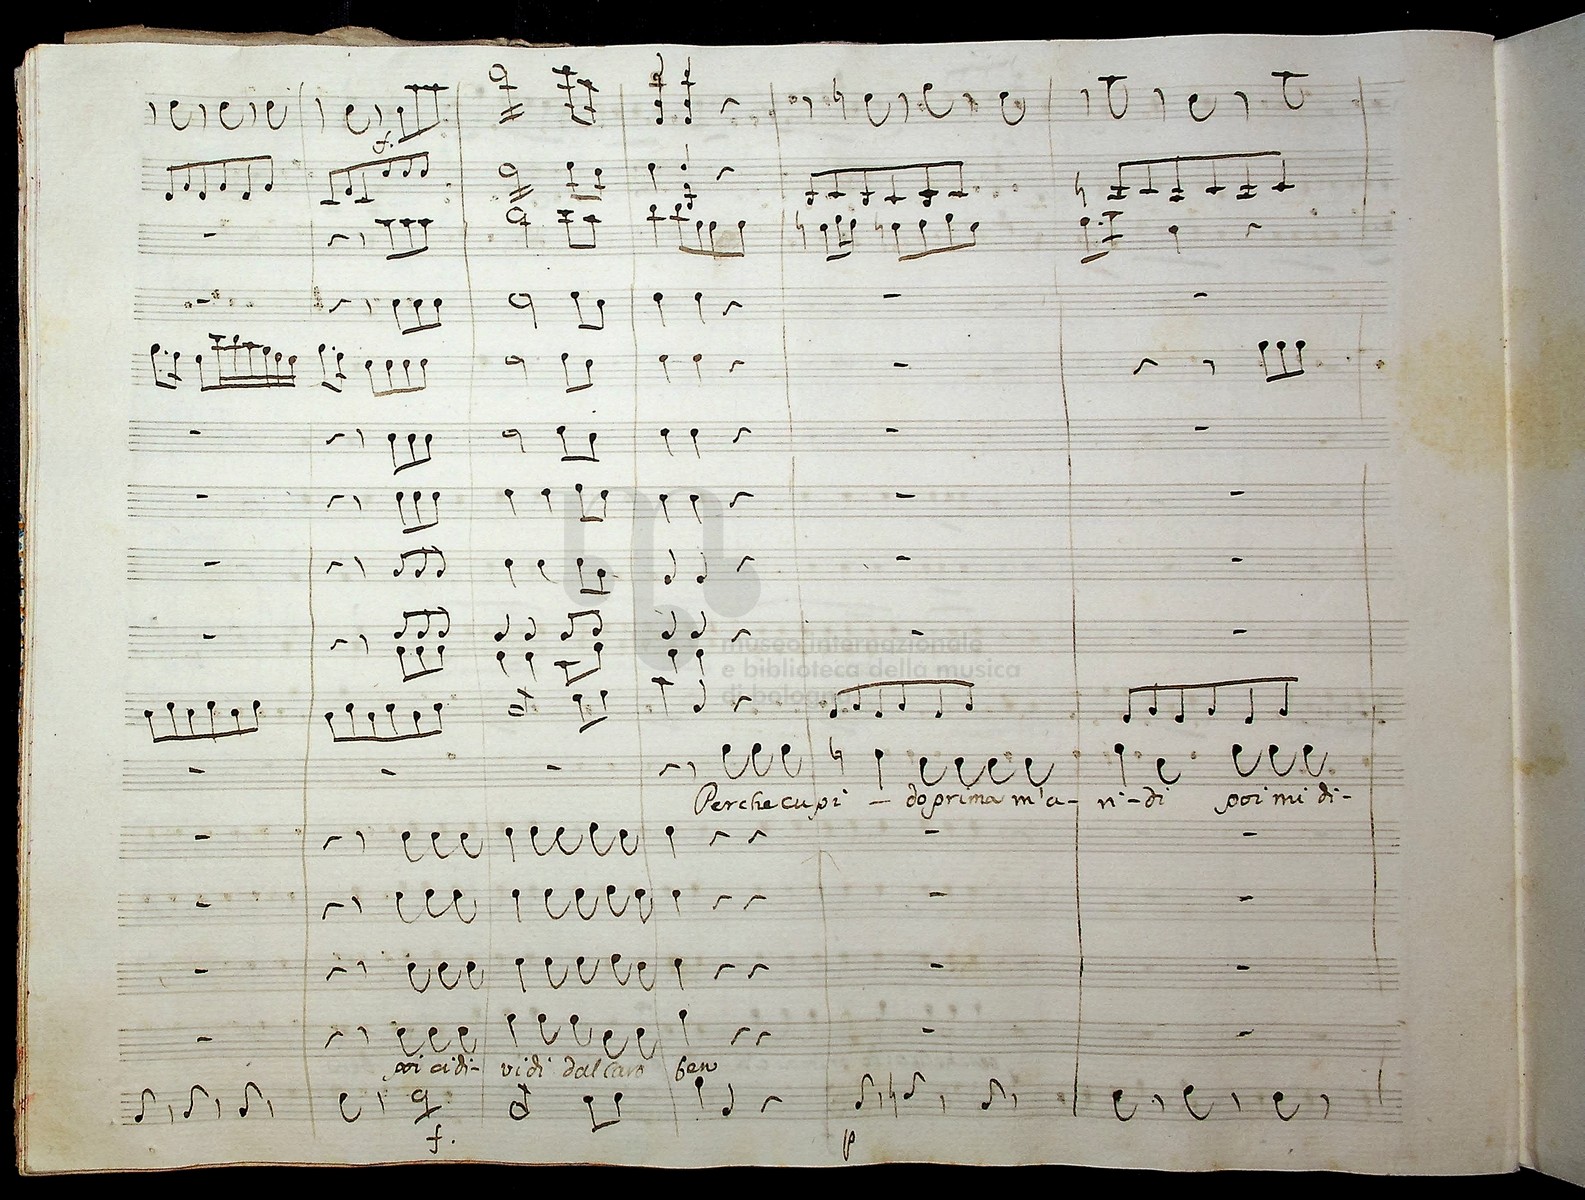 f.
museo internazionale
e biblioteca della musica
di bologna
Perche cupi - do prima m'a - ni - di poi mi di -
poi ci di - vidi dal caro ben
f.
p